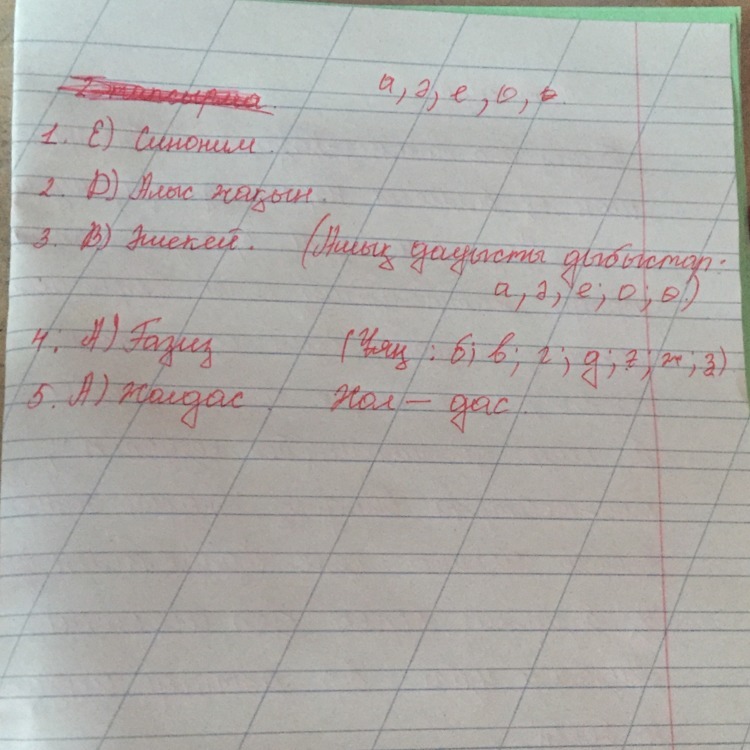 2 тапсырма. а, ә, е, о, ө.
1. Е) Синоним.
2. D) Алыс жақын.
3. В) Әшекей. (Ашық дауысты дыбыстар:
а, ә, е; о; ө)
4. А) Ғазиз (Ұяң: б; в; г; д; ж; з)
5. А) Жолдас. Жол – дас.